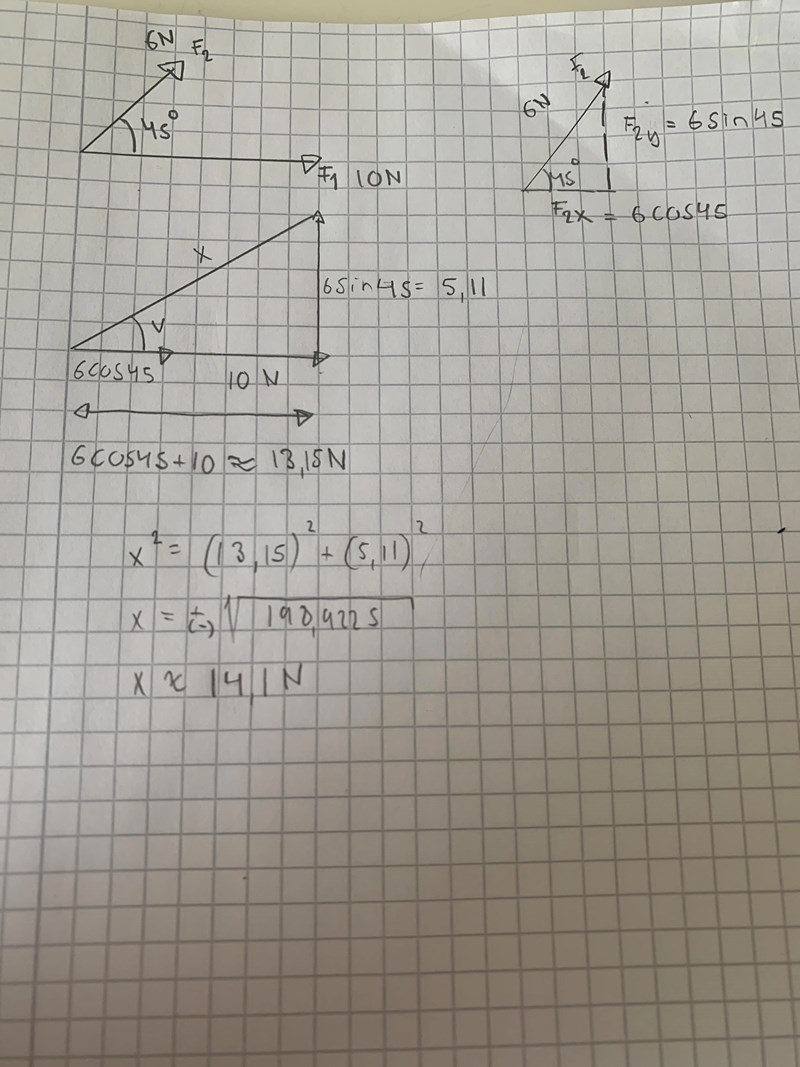 6N F₂
45°
F₁ 10N
F₂
6N
F₂y = 6sin45
45°
F₂x = 6cos45
x
6sin45 = 5,11
v
6cos45 10 N
6cos45+10 ≈ 13,15N
x² = (13,15)² + (5,11)²
x = ±(-) √198,9225
x ≈ 14,1 N